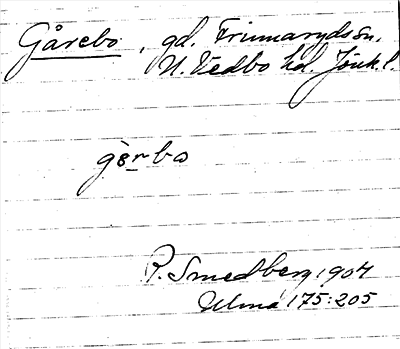 Gårebo, gd. Frinnarydssn.
N. Vedbo hd. Jönk.l.
gȯrbo
P. Smedberg 1904
Ulma 175:205